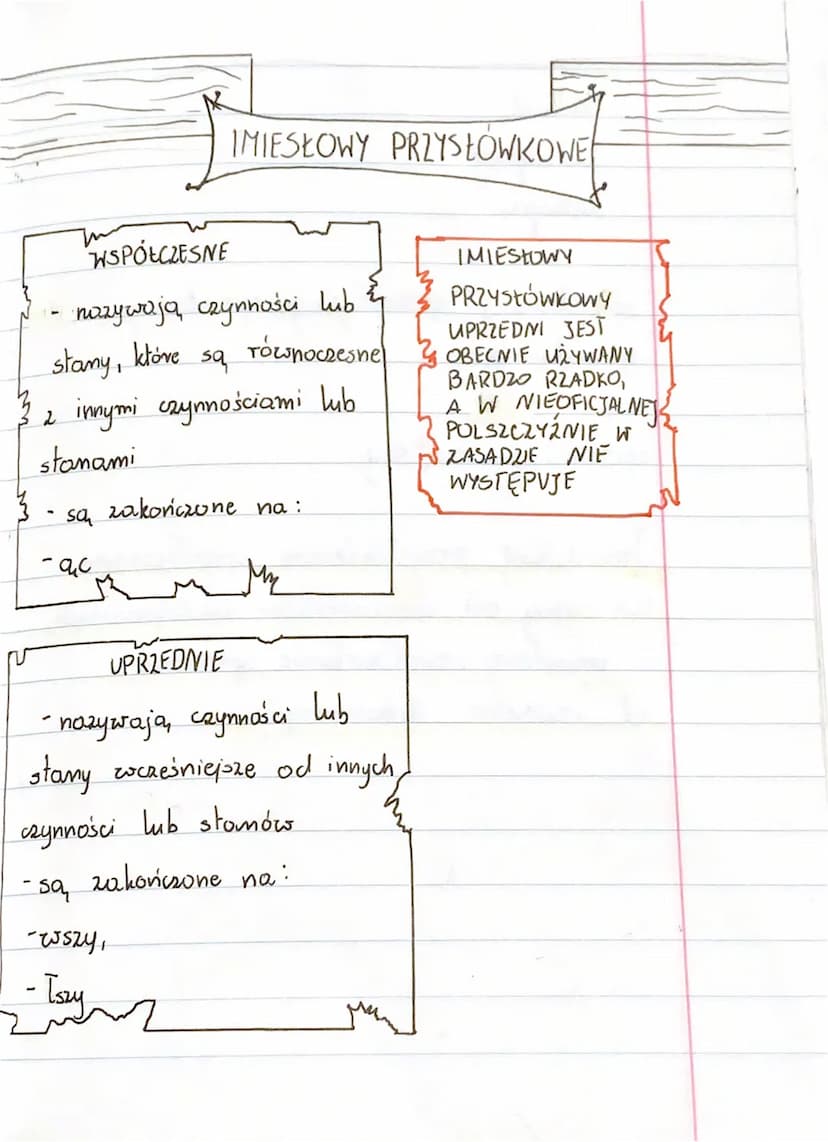 IMIESŁOWY PRZYSŁÓWKOWE
WSPÓŁCZESNE
- nazywają czynności lub
stany, które są równoczesne
z innymi czynnościami lub
stanami
- są zakończone na:
-ąc
IMIESŁOWY
PRZYSŁÓWKOWY
UPRZEDNI JEST
OBECNIE UŻYWANY
BARDZO RZADKO,
A W NIEOFICJALNEJ
POLSZCZYŹNIE W
ZASADZIE NIE
WYSTĘPUJE
UPRZEDNIE
- nazywają czynności lub
stany wcześniejsze od innych
czynności lub stanów
- są zakończone na:
-wszy,
- łszy